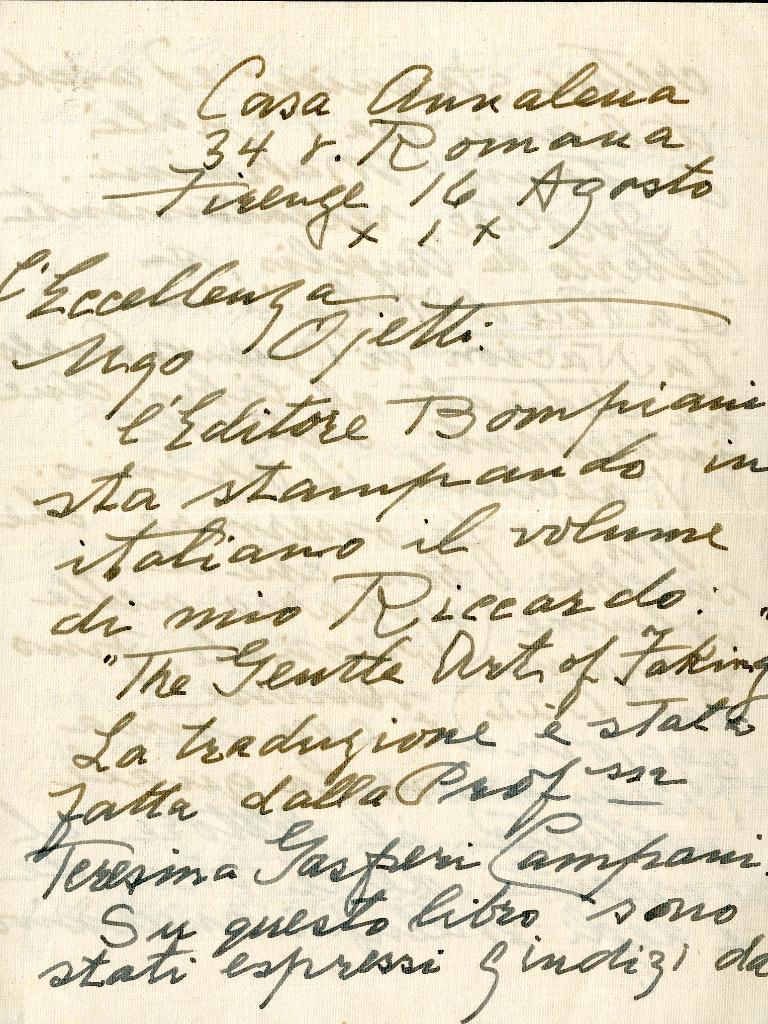 Casa Annalena
34 v. Romana
Firenze 16 Agosto
x 1 x
l'Eccellenza
Ugo Ojetti.
l'Editore Bompiani
sta stampando in
italiano il volume
di mio Riccardo: "
"The Gentle Art of Faking
La traduzione è stata
fatta dalla Prof ssa
Teresina Gasperi Campani.
Su questo libro sono
stati espressi giudizi da